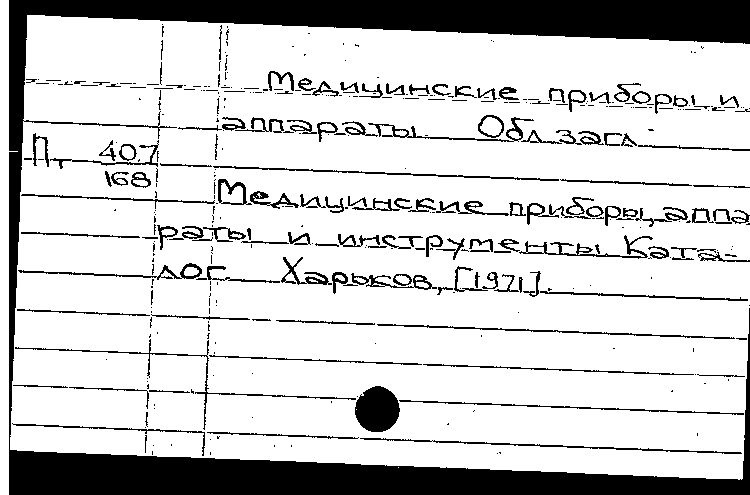 Медицинские приборы и
аппараты Обл. загл.
П. 407
168
Медицинские приборы, аппа
раты и инструменты Ката-
лог Харьков, [1971].